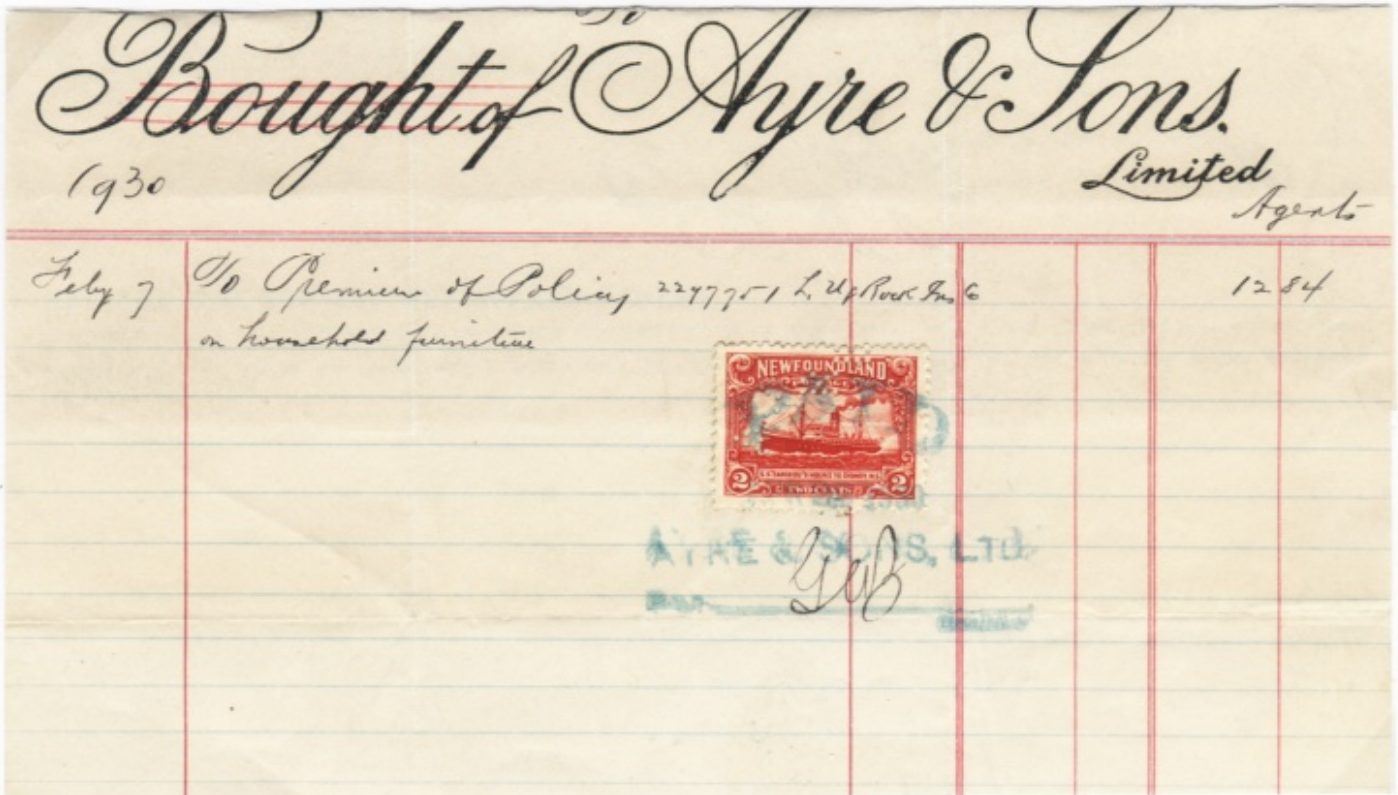 To
Bought of Ayre & Sons.
Limited
1930
Agents
Feby 7 To Premium of Policy 2297751 L. U & Rock Ins Co 12 84
on household furniture
NEWFOUNDLAND
PAID
2 S.S. "CARIBOU" 2
TWO CENTS
AYRE & SONS, LTD.